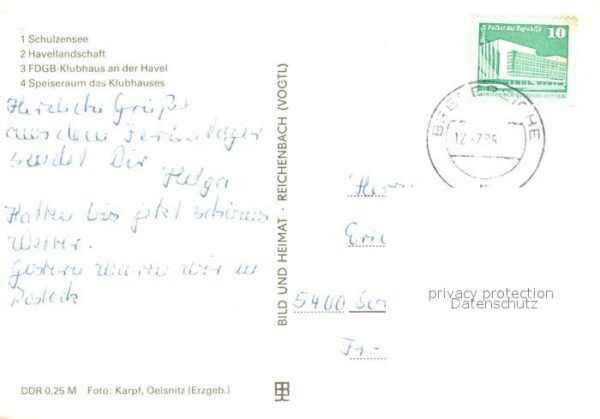 1 Schulzensee
2 Havellandschaft
3 FDGB-Klubhaus an der Havel
4 Speiseraum des Klubhauses
Herzliche Grüße
aus dem Ferienlager
sendet Dir
Helga
Hatten bis jetzt schönes
Wetter.
Gestern waren wir in
BILD UND HEIMAT · REICHENBACH (VOGTL)
Berlin Palast der Republik
10
12.-7.85
Herrn
Eric
5400
privacy protection
Datenschutz
DDR 0,25 M Foto: Karpf, Oelsnitz (Erzgeb.)